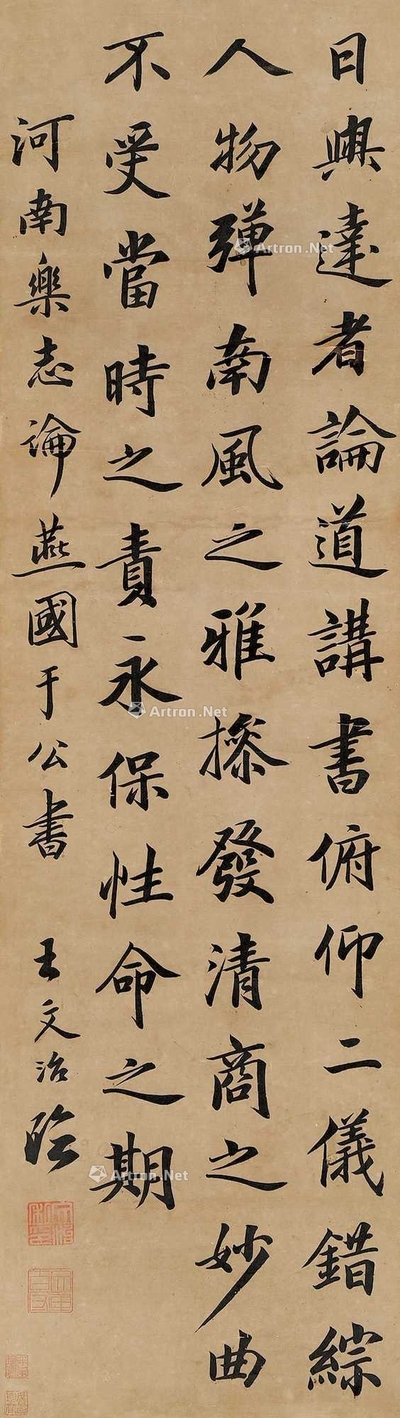 日與達者論道講書俯仰二儀錯綜
人物彈南風之雅操發清商之妙曲
不受當時之責永保性命之期
河南樂志論燕國于公書
王文治臨
Artron.Net
Artron.Net
Artron.Net